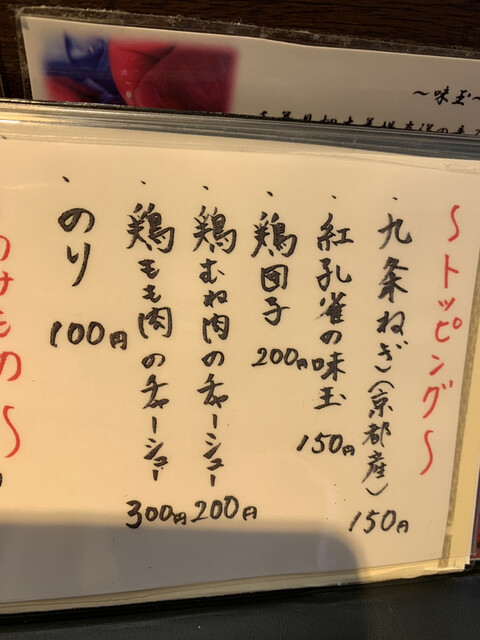 ～味玉～
～トッピング～
・九条ねぎ（京都産）150円
・紅孔雀の味玉 150円
・鶏団子 200円
・鶏むね肉のチャーシュー 200円
・鶏もも肉のチャーシュー 300円
・のり 100円